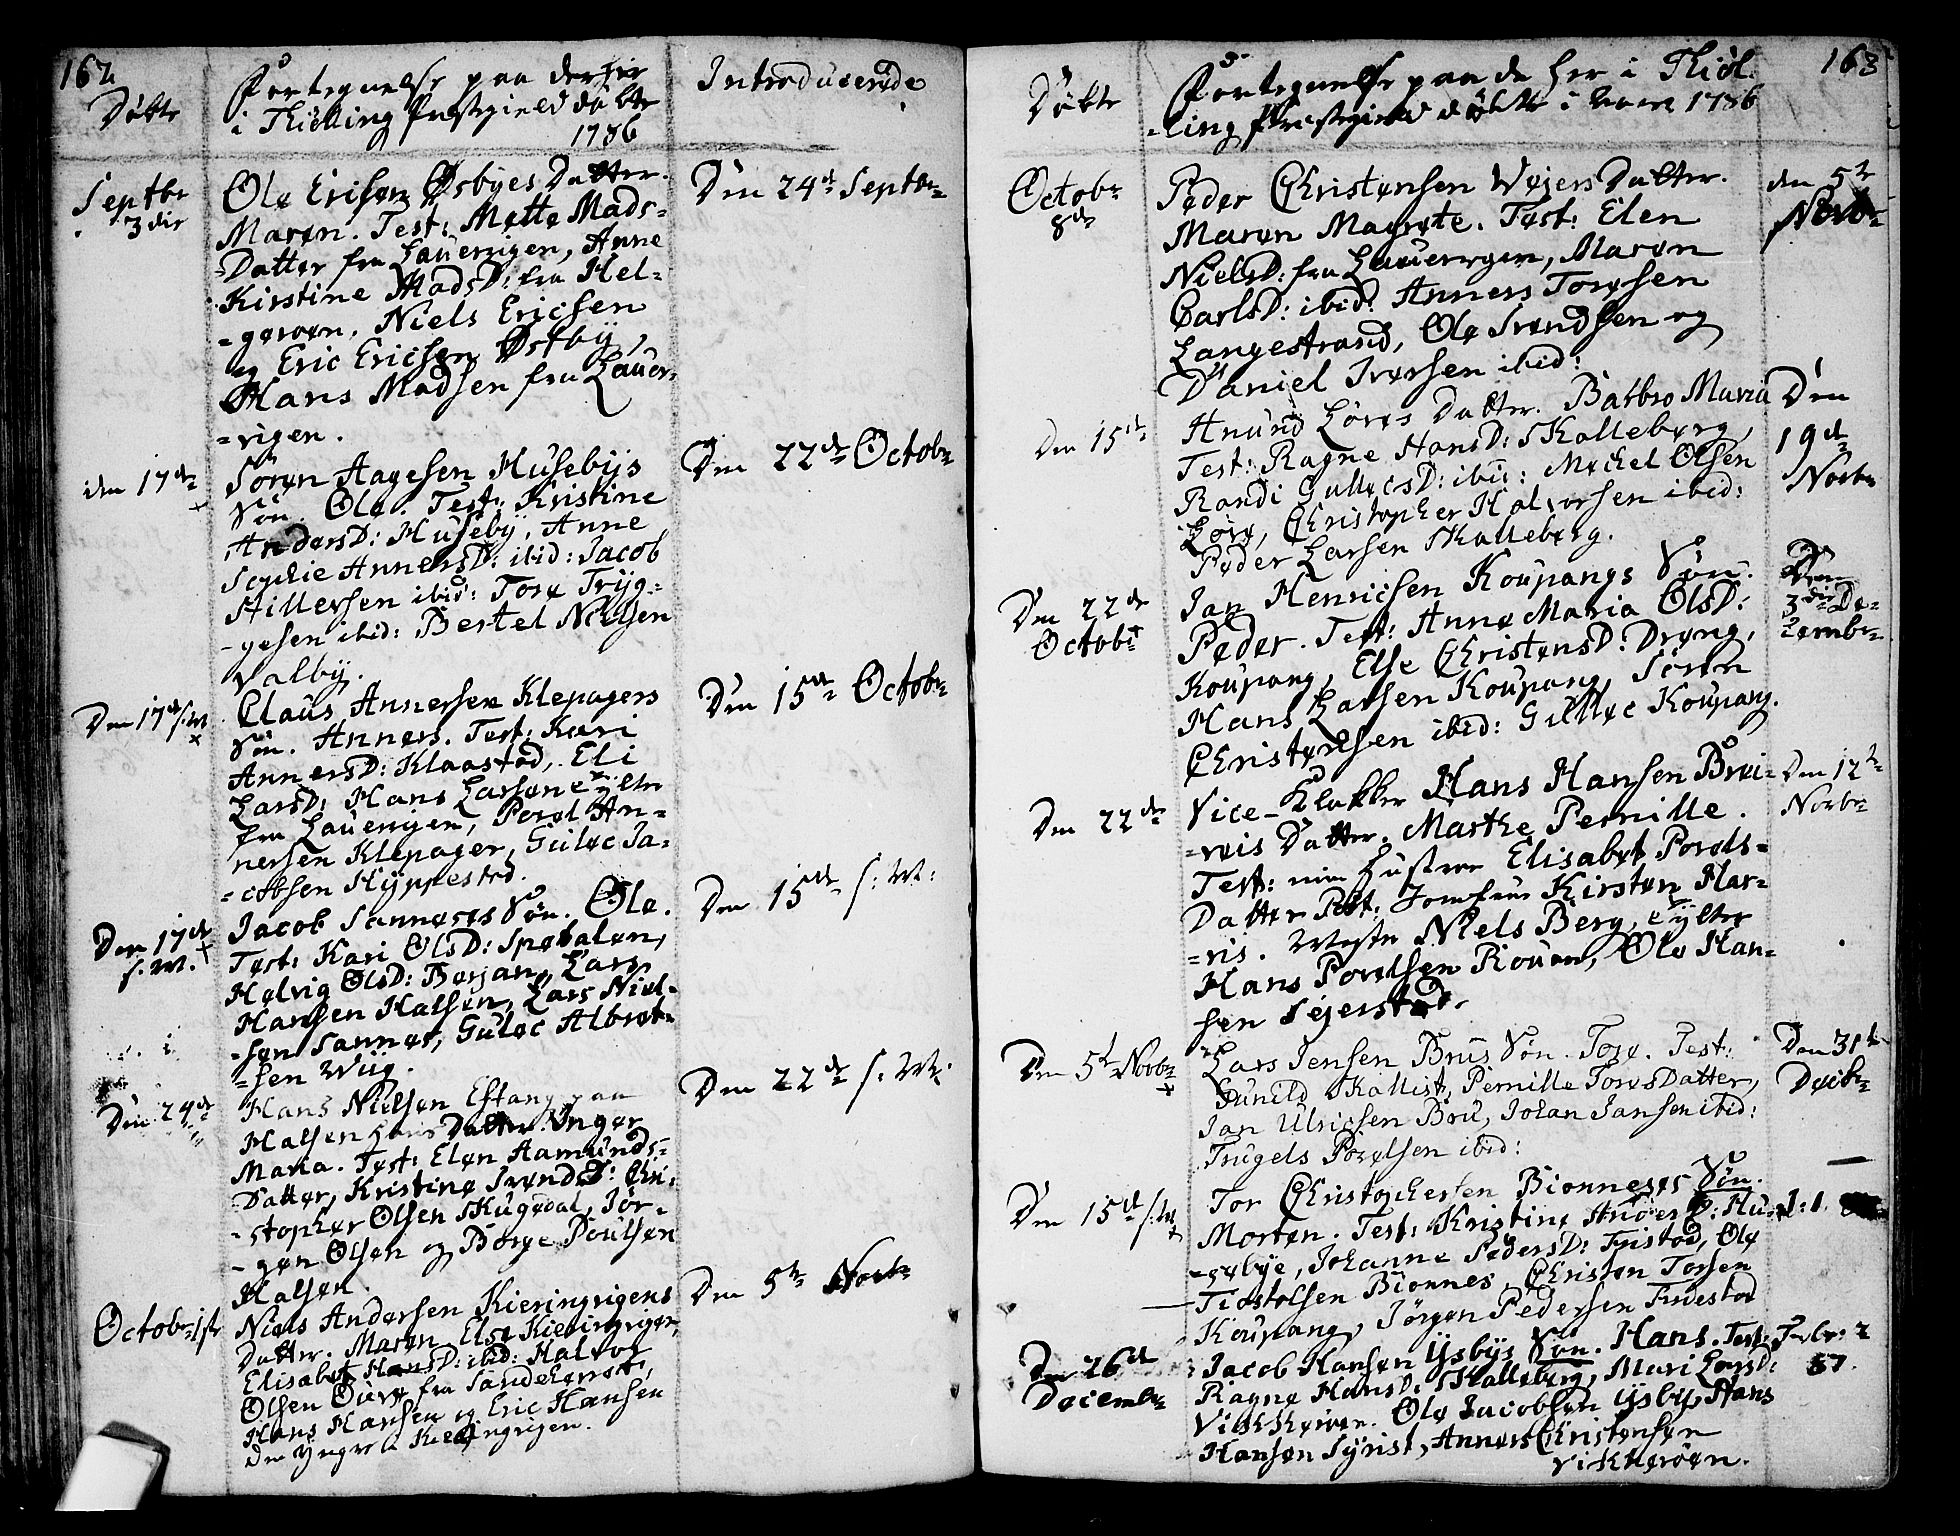 162
Døbte
Fortegnelse paa der her
i Thiølling Præstegield døbte
1786
Introducerede
Septbr
3die
Ole Ericsen Østbyes Datter.
Maren. Test: Mette Mads-
-Datter fra Lauerigen, Anne
Kirstine MadsD: fra Hel-
-geroen, Niels Ericsen
og Eric Ericsen Østby,
Hans Madsen fra Lauer-
-rigen.
Den 24de Septbr
den 17de
Søren Aagesen Husebijs
Søn. Ole. Test: Kristine
AndersD: Huseby, Anne
Sophie AnnersD: ibid: Jacob
Hillersen ibid: Tore Tryg-
-gesen ibid: Bertel Nielsen
Valby.
Den 22de Octobr
Den 17de s: M
Claus Annersen Klepagers
Søn. Anners. Test: Kari
AnnersD: Klaastad, Eli
LarsD: Hans Larsen Eylter
fra Lauerigen, Povel An-
nersen Klepager, Guloc Ja-
-cobsen Hyppestad.
Den 15de Octobr
Den 17de
s: M.
Jacob Sanneses Søn. Ole.
Test: Kari OlsD: Spodalen,
Helvig OlsD: Berjan, Lars
Hansen Halsen, Lars Niel-
-sen Sannes, Guloc Albret-
-sen Wiig.
Den 15de s: M:
Den 24de
Hans Nielsen Estang paa
Halsen hans Datter. Inger
Maria. Test: Elen Aamunds-
Datter, Kristine IvendsD: Chri-
-stopher Olsen Skugedal, Jør-
-gen Olsen og Børge Poulsen
Halsen.
Den 22de s: M:
Octobr 1ste
Niels Andersen Kieringrigens
Datter. Maren Else Kieringrigen,
Elisabet HansD: ibid: Halvor
Olsen Ourø fra Sandeherret,
Hans Hansen og Eric Hansen
den Yngre i Kieringrigen.
Den 5te Novbr
163
Døbte
Fortegnelse paa de her i Thiøl-
-ling Præstegield døbte i Aaret 1786
Octobr
8de
Peder Christensen Wejers Datter.
Maren Magrete. Test: Elen
NielsD: fra Lauerrigen, Maren
CarlsD: ibid: Anners Toresen
Langestrand, Ole Svendsen og
Daniel Iversen ibid:
den 5te
Novbr
Den 15de
Anund Løves Datter. Barbro Maria
Test: Ragne HansD: Skalleberg,
Randi GullocsD: ibid: Mickel Olsen
Løve, Christopher Halvorsen ibid:
Peder Larsen Skalleberg.
Den
19de
Novbr
Den 22de
Octobr
Jan Henricsen Koupangs Søn.
Peder. Test: Anne Maria OlsD:
Koupang, Else ChristensD: Dreng,
Hans Larsen Koupang, Søren
Christensen ibid: Gulloc Koupang.
Den
3die De-
zembr
Den 22de
Vice-Klokker Hans Hansen Brei-
-veis Datter. Marthe Pernille.
Test: min Hustrue Elisabet Povels-
Datter Pet: Jomfrue Kirsten Har-
-ris. Messr Niels Berg, Eylter
Hans Povelsen Rouen, Ole Han-
sen Sejerstad.
Den 12te
Novbr
Den 5te Novbr
Lars Jensen Brus Søn. Tore. Test:
Gunild Skallist, Pernille ToresDatter,
Jan Ulricsen Bru, Johan Jansen ibid:
Trugels Povelsen ibid:
Den 31te
Decbr
Den 15de s: M
Tor Christophersen Bionneses Søn.
Morten. Test: Kristine AndersD: Hu-
-sebye, Johanne PedersD: Fristad, Ole
Tiostolsen Bionnes, Christen Torsen
Koupang, Jørgen Pedersen Fristad
Den 26de
Decembr
Jacob Hansen Ysbys Søn. Hans. Test:
Ragne HansD: Skalleberg, Mari LarsD:
Vikskoven. Ole Jacobsen Ysby, Hans
Hansen Syrist, Anners Christensen
Vikskoven.
Febr: 2
87.